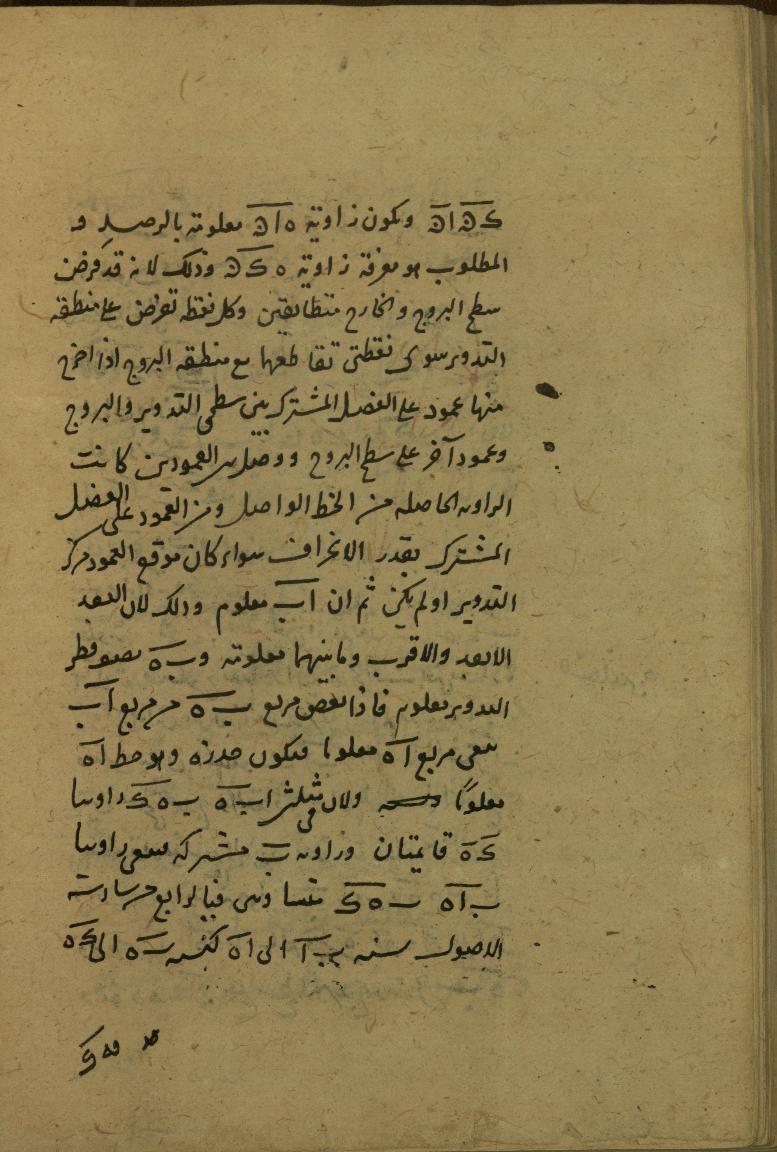 كه اه ويكون زاوية ه ا ه معلومة بالرصد و
المطلوب هو معرفة زاوية ه ك ه وذلك لانه قد فرض
سطح البروج والخارج متطابقين وكل نقطه تفرض على منطقه
التدوير سوى نقطتى تقاطعها مع منطقه البروج اذا اخرج
منها عمود على الفصل المشترك بين سطحى التدوير والبروج
وعمود آخر على سطح البروج ووصل بين العمودين كانت
الزاويه الحاصله من الخط الواصل ومن العمود على الفصل
المشترك بقدر الانحراف سواء كان موقع العمود مركز
التدوير او لم يكن ثم ان اب معلوم وذلك لان البعد
الابعد والاقرب وما بينهما معلومة و ب ه نصف قطر
التدوير معلوم فاذا نقص مربع ب ه من مربع اب
بقى مربع اه معلوما فيكون جذره وهو خط اه
معلومًا ولان فى مثلثى اب ه ب ه ك زاويتا
ك ه قايمتان وزاويه ب مشتركه فبقى زاويتا
ب اه ب ه ك متساويتين فبالرابع من سادسة
الاصول نسبه ب ا الى اه كنسبه ب ه الى ك ه